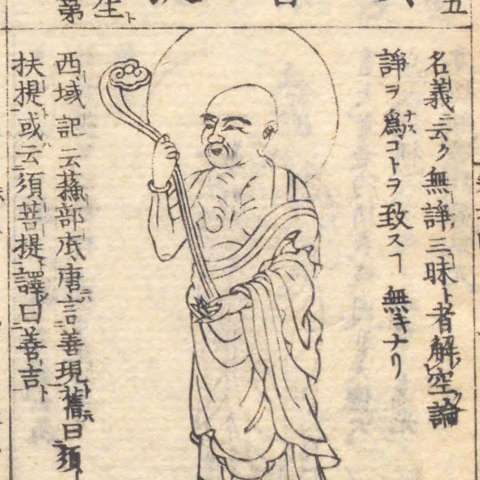 名義ニ云ク無諍三昧ト者解空論
諍ヲ為コトヲ致スヿ無キナリ
西域記ニ云蘓部底唐ニ言善現舊曰須
扶提或云須菩提譯曰善吉